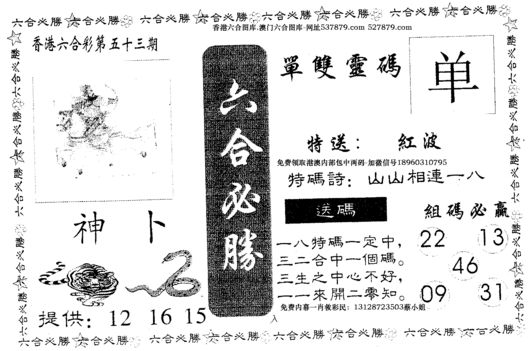 六合必勝 六合必勝 六合必勝 六合必勝 六合必勝 六合必勝
香港六合图库.澳门六合图库-网址537879.com 527879.com
香港六合彩第五十三期
神卜
提供：12 16 15
六合必勝
單雙靈碼
单
特送：紅波
免费领取港澳内部包中两码-加微信号18960310795
特碼詩：山山相連一八
送碼
一八特碼一定中，
三二合中一個碼。
三生之中心不好，
一一來開二零知。
免费内幕一肖後彩民：13128723503蔡小姐
組碼必贏
22 13
46
09 31
六合必勝 六合必勝 六合必勝 六合必勝 六合必勝 六合必勝